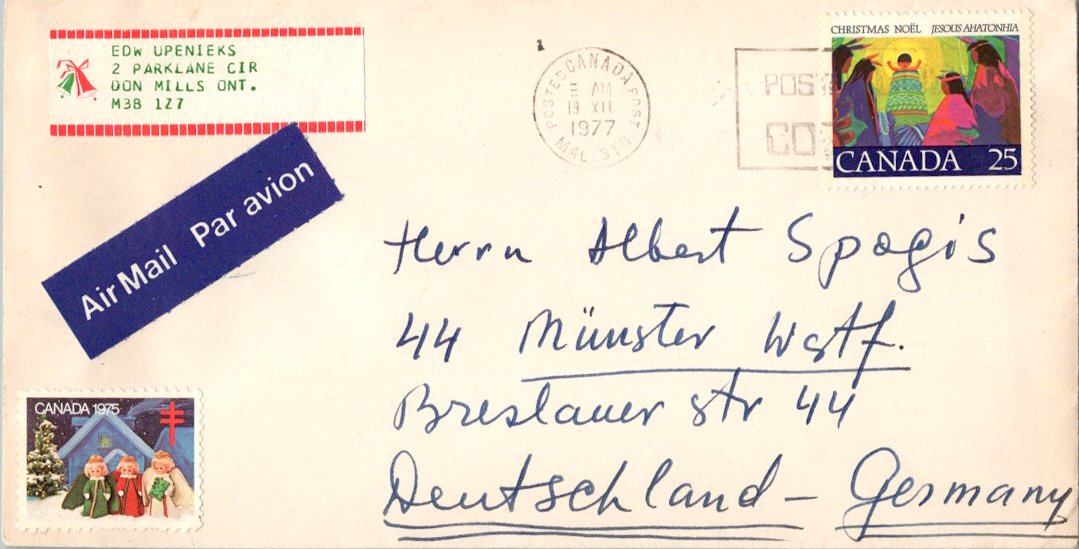 EDW UPENIEKS
2 PARKLANE CIR
DON MILLS ONT.
M3B 1Z7
POSTES CANADA POST
AM
19 XII
1977
M4L 3T0
POST
CO
CHRISTMAS NOËL JESOUS AHATONHIA
CANADA 25
Air Mail Par avion
Herrn Albert Spogis
44 Münster Wstf.
Breslauer str 44
Deutschland – Germany
CANADA 1975